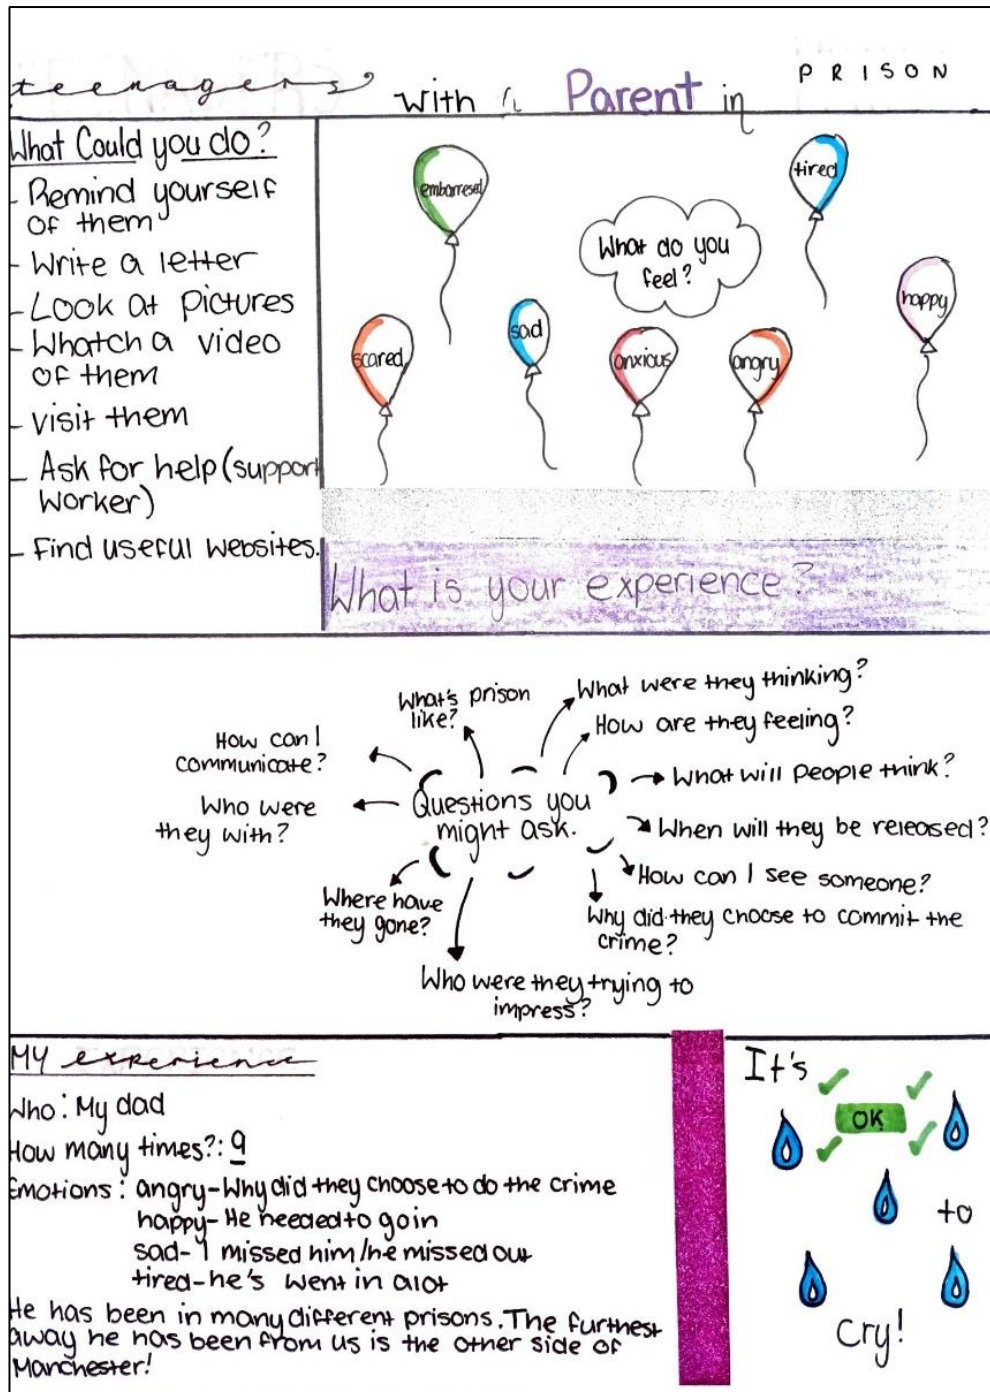 teenagers with a Parent in PRISON
What Could you do?
- Remind yourself
of them
- Write a letter
- Look at pictures
- Whatch a video
of them
- visit them
- Ask for help (support
worker)
- Find useful websites.
embarresed
tired
What do you
feel?
happy
scared
sad
anxious
angry
What is your experience?
Questions you
might ask.
What's prison
like?
What were they thinking?
How are they feeling?
What will people think?
When will they be released?
How can I see someone?
Why did they choose to commit the
crime?
Who were they trying to
impress?
Where have
they gone?
Who were
they with?
How can I
communicate?
MY experience
Who: My dad
How many times?: 9
Emotions: angry-Why did they choose to do the crime
happy- He needed to go in
sad- I missed him/he missed out
tired-he's went in alot
He has been in many different prisons. The furthest
away he has been from us is the other side of
Manchester!
It's
OK
to
cry!